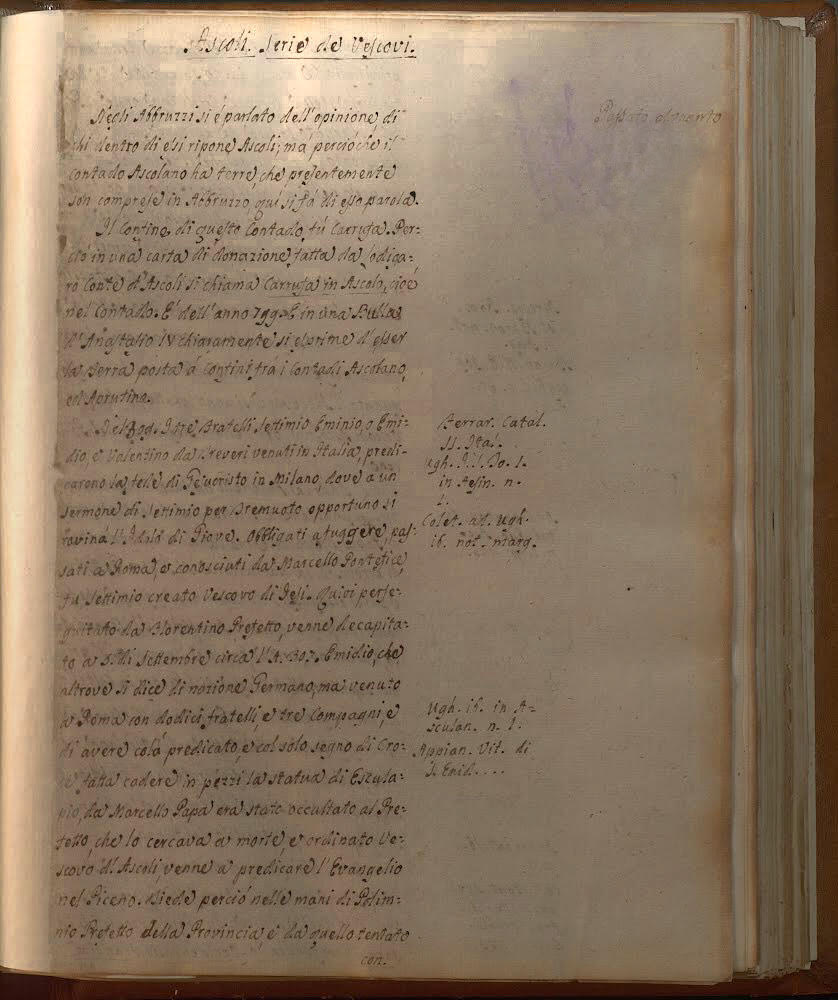 Ascoli. Serie de' Vescovi.
Passato al quinto
Negli Abbruzzi si é parlato dell' opinione, di
chi dentro di essi ripone Ascoli; má perciocche il
Contado Ascolano ha terre, che presentemente
son comprese in Abbruzzo, qui si fá di esso parola.
Il Confine, di questo Contado, fú Carrufa. Per-
ció in una carta di donazione, fatta da Lodiga-
ro Conte d' Ascoli si chiama Carrufa in Ascolo, cioé
nel Contado. E' dell' anno 799. E in una Bulla
d' Anastasio IV chiaramente si esprime d' esser
la Terra posta á Confini frá i Contadi Ascolano,
ed Aprutino.
Nel I tre Fratelli Settimio Eminio, o Emi-
dio, e Valentino da Treveri venuti in Italia, predi-
carono la fede di Gesucristo in Milano, dove a un
sermone di Settimio per Tremuoto opportuno si
rovinà l' Idolo di Giove. Obbligati a fuggere, pas-
sati a Roma, e conosciuti da Marcello Pontefice,
fu Settimio creato Vescovo di Jesi. Quivi perse-
guitato da Florentino Prefetto, venne decapita-
to a 5. di Settembre circa l' A. 307. Emidio, che
altrove si dice di nazione Germano, ma venuto
a Roma con dodici fratelli, e tre Compagni, e
di avere colá predicato, e col solo segno di Cro-
ce fatta cadere in pezzi la statua di Escula-
pio, da Marcello Papa era stato occultato al Pre-
fetto, che lo cercava a morte, e ordinato Ve-
scovo d' Ascoli, venne a predicare l' Evangelio
nel Piceno. Diede perció nelle mani di Polim-
nio Prefetto della Provincia, e da quello tentato
con.
Ferrar. Catal.
SS. Ital.
Ugh. To. 1.
in Aesin. n.
1.
Colet. at. Ugh.
ib. not. marg.
Ugh. ib. in A-
sculan. n. 1.
Appian. Vit. di
S. Emid....